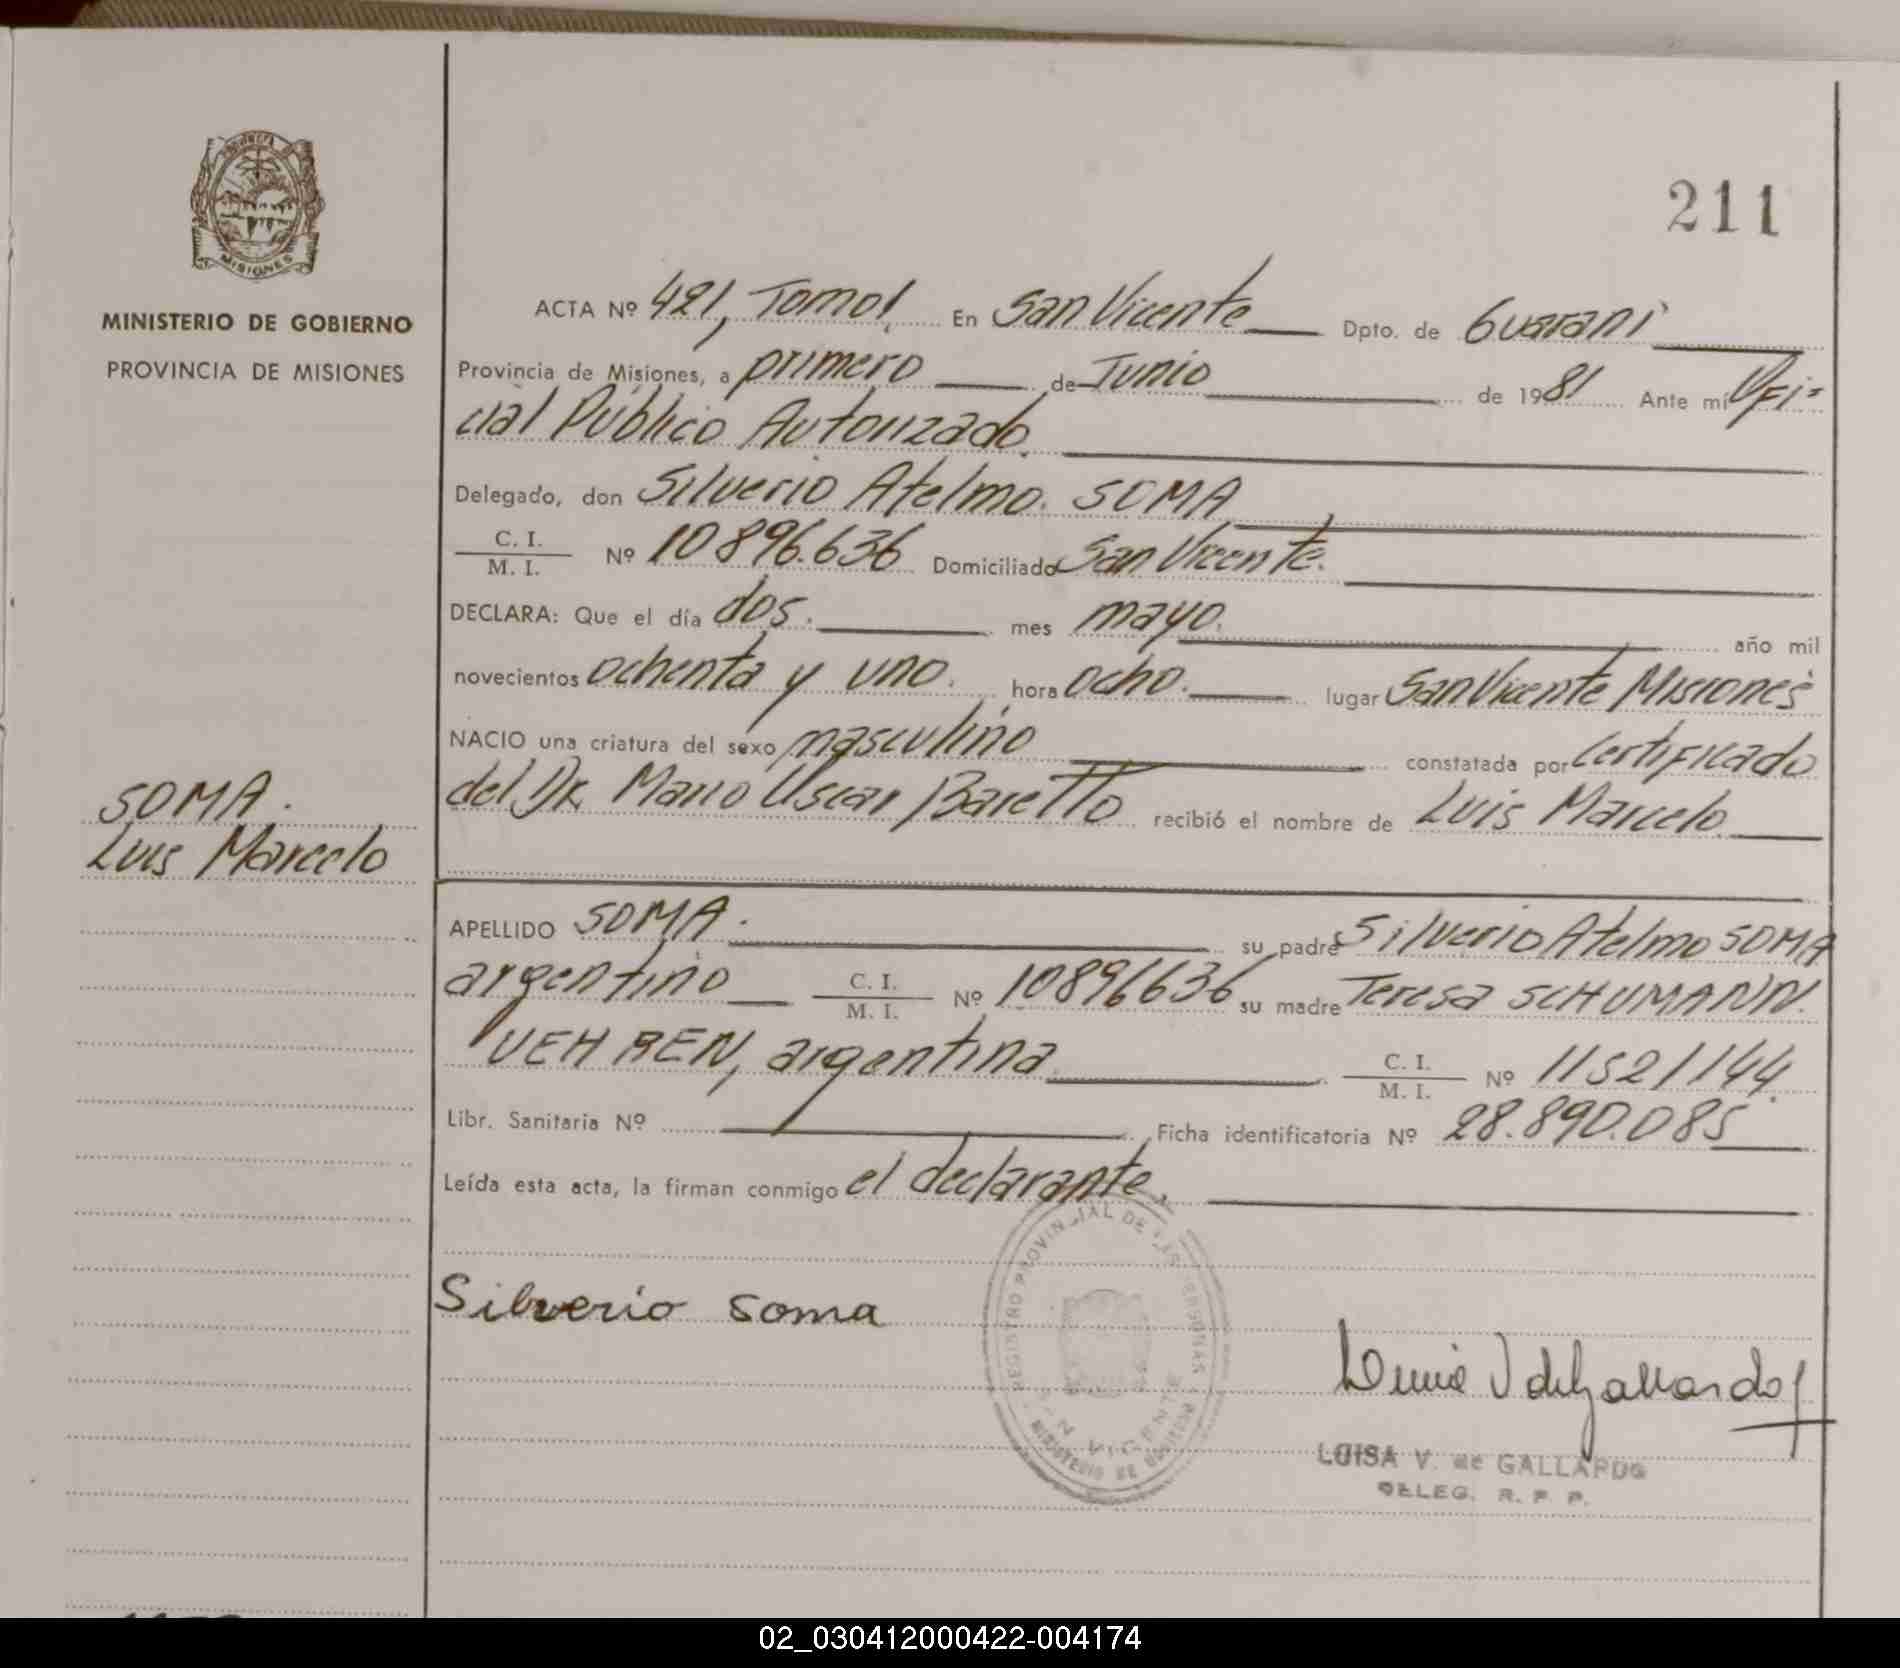 211
MISIONES
MINISTERIO DE GOBIERNO
PROVINCIA DE MISIONES
SOMA.
Luis Marcelo
ACTA Nº 421, Tomo I En San Vicente Dpto. de Guarani
Provincia de Misiones, a primero de Junio de 1981 Ante mi Ofi=
cial Público Autorizado.
Delegado, don Silverio Atelmo. SOMA
C. I.
M. I. Nº 10896.636 Domiciliado San Vicente.
DECLARA: Que el día dos. mes mayo. año mil
novecientos ochenta y uno. hora ocho. lugar San Vicente Misiones
NACIO una criatura del sexo masculino constatada por Certificado
del Dr. Mario Oscar Baretto recibió el nombre de Luis Marcelo
APELLIDO SOMA. su padre Silverio Atelmo SOMA
argentino C. I.
M. I. Nº 10896636 su madre Teresa SCHUMANN.
VEHREN, argentina C. I.
M. I. Nº 11521144.
Libr. Sanitaria Nº Ficha identificatoria Nº 28.890.085
Leída esta acta, la firman conmigo el declarante.
REGISTRO PROVINCIAL DE LAS PERSONAS
SAN VICENTE
MINISTERIO DE GOBIERNO
Silverio Soma
LUISA V. de GALLARDO
DELEG. R. P. P.
02_030412000422-004174